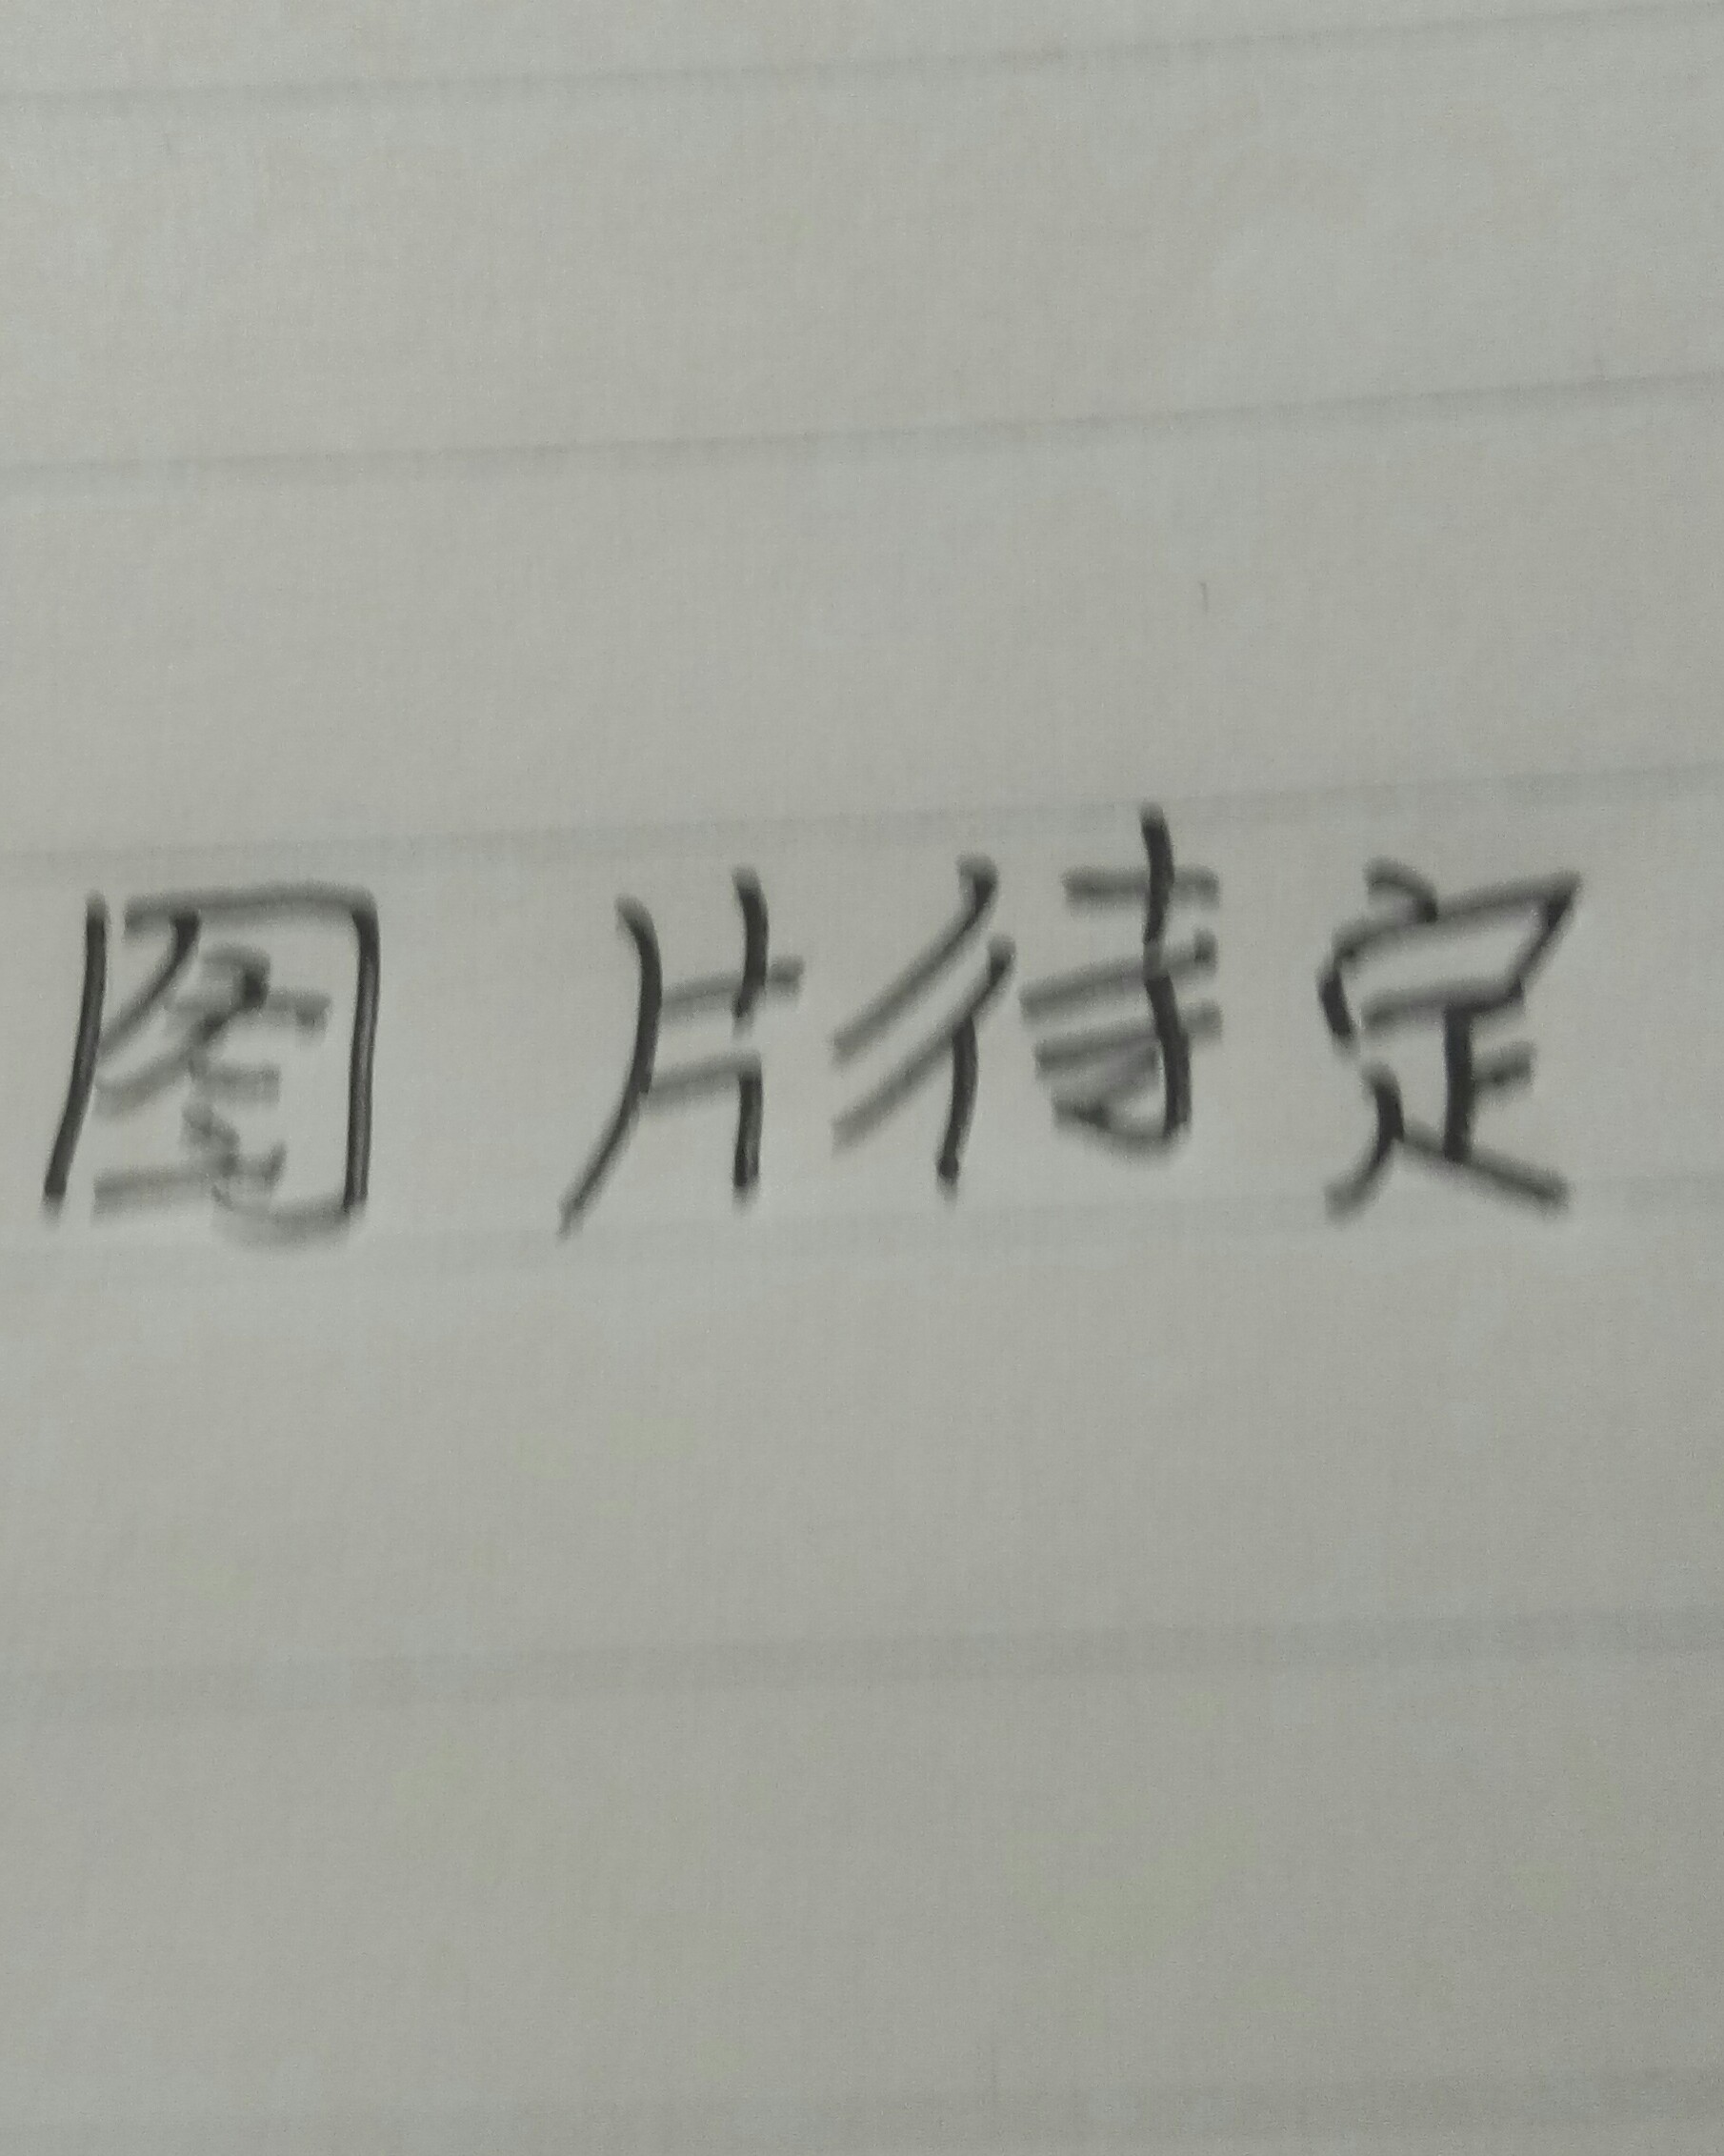 图片待定